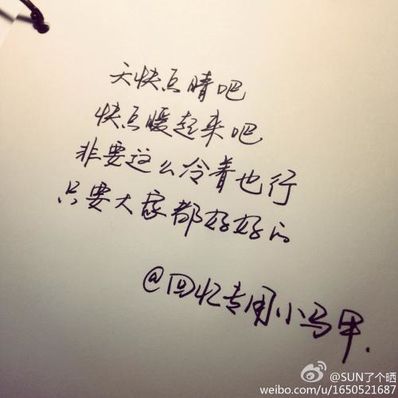 天快点晴吧
快点暖起来吧
非要这么冷青也行
只要大家都好好的
@回忆专用小马甲.
@SUN了个晒
weibo.com/u/1650521687